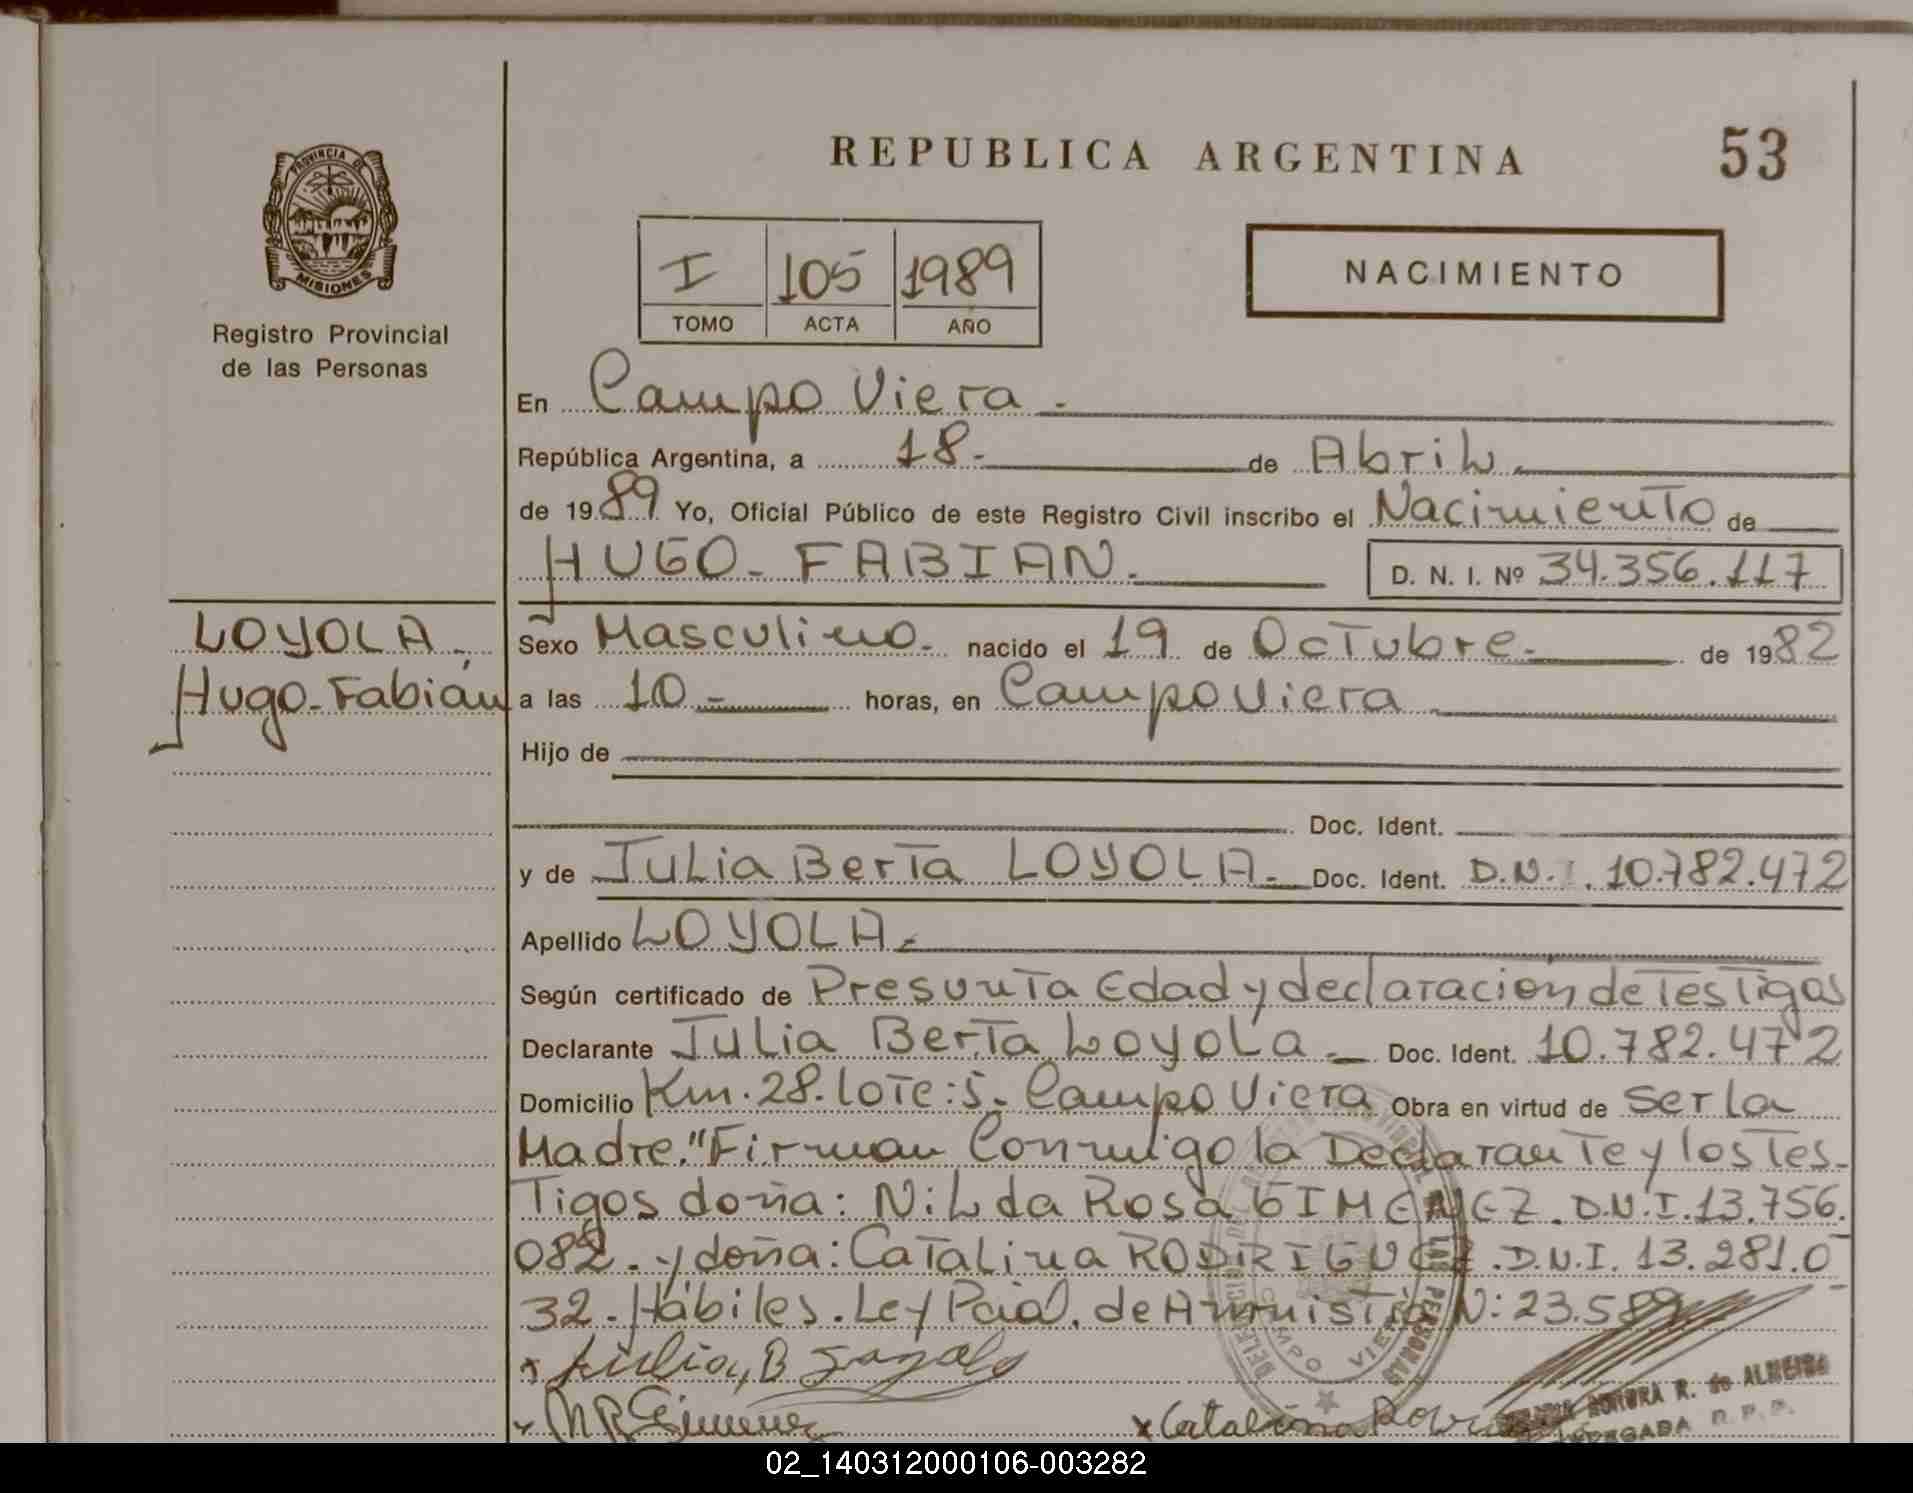 REPUBLICA ARGENTINA
53
PROVINCIA DE
MISIONES
Registro Provincial
de las Personas
I 105 1989
TOMO ACTA AÑO
NACIMIENTO
En Campo Viera.
República Argentina, a 18 de Abril
de 1989 Yo, Oficial Público de este Registro Civil inscribo el Nacimiento de
HUGO-FABIAN.
D. N. I. Nº 34.356.117
LOYOLA.
Hugo-Fabián
Sexo Masculino. nacido el 19 de Octubre. de 1982
a las 10 horas, en Campo Viera
Hijo de
Doc. Ident.
y de Julia Berta LOYOLA. Doc. Ident. D.N.I. 10.782.472
Apellido LOYOLA.
Según certificado de Presunta Edad y declaración de Testigos
Declarante Julia Berta Loyola Doc. Ident. 10.782.472
Domicilio Km. 28. Lote: 5. Campo Viera Obra en virtud de ser la
Madre." Firman Conmigo la Declarante y los Tes-
tigos doña: Nilda Rosa GIMENEZ. D.N.I. 13.756.
082. y doña: Catalina RODRIGUEZ. D.N.I. 13.281.0
32. Hábiles. Ley Pcial. de Amnistía N: 23.589
CAMPO VIERA
x Julia, B
x N R Gimenez x Catalina
R. de ALMEIDA
DELEGADA R. P. P.
02_140312000106-003282